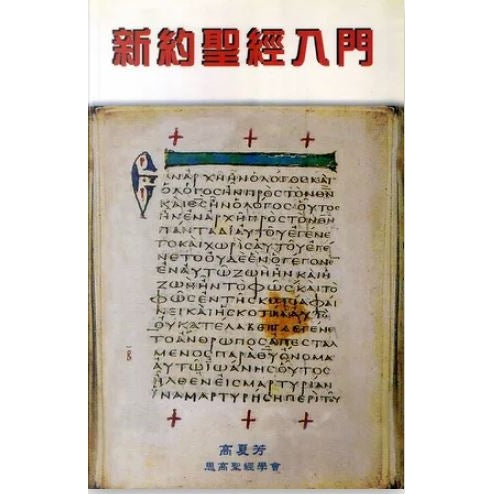 新約聖經入門
ΕΝΑΡΧΗΗΝΟΛΟΓΟϹΚΑΙ
ΟΛΟΓΟϹΗΝΠΡΟϹΤΟΝΘΝ
ΚΑΙΘϹΗΝΟΛΟΓΟϹΟΥΤΟϹ
ΗΝΕΝΑΡΧΗΠΡΟϹΤΟΝΘΝ
ΠΑΝΤΑΔΙΑΥΤΟΥΕΓΕΝΕ
ΤΟΚΑΙΧΩΡΙϹΑΥΤΟΥΕΓΕ
ΝΕΤΟΟΥΔΕΕΝΟΓΕΓΟΝ
ΕΝΑΥΤΩΖΩΗΗΝΚΑΙΗ
ΖΩΗΗΝΤΟΦΩϹΚΑΙΤΟ
ΦΩϹΕΝΤΗϹΚΟΤΙΑΦΑΙ
ΝΕΙΚΑΙΗϹΚΟΤΙΑΑΥΤΟ
ΟΥΚΑΤΕΛΑΒΕΝΕΓΕΝΕ
ΤΟΑΝΘΡΩΠΟϹΑΠΕϹΤΑΛ
ΜΕΝΟϹΠΑΡΑΘΥΟΝΟΜΑ
ΑΥΤΩΙΩΑΝΝΗϹΟΥΤΟϹ
ΗΛΘΕΝΕΙϹΜΑΡΤΥΡΙΑΝ
ΙΝΑΜΑΡΤΥΡΗϹΗΠΕΡΙΤΟΥ
高夏芳
思高聖經學會